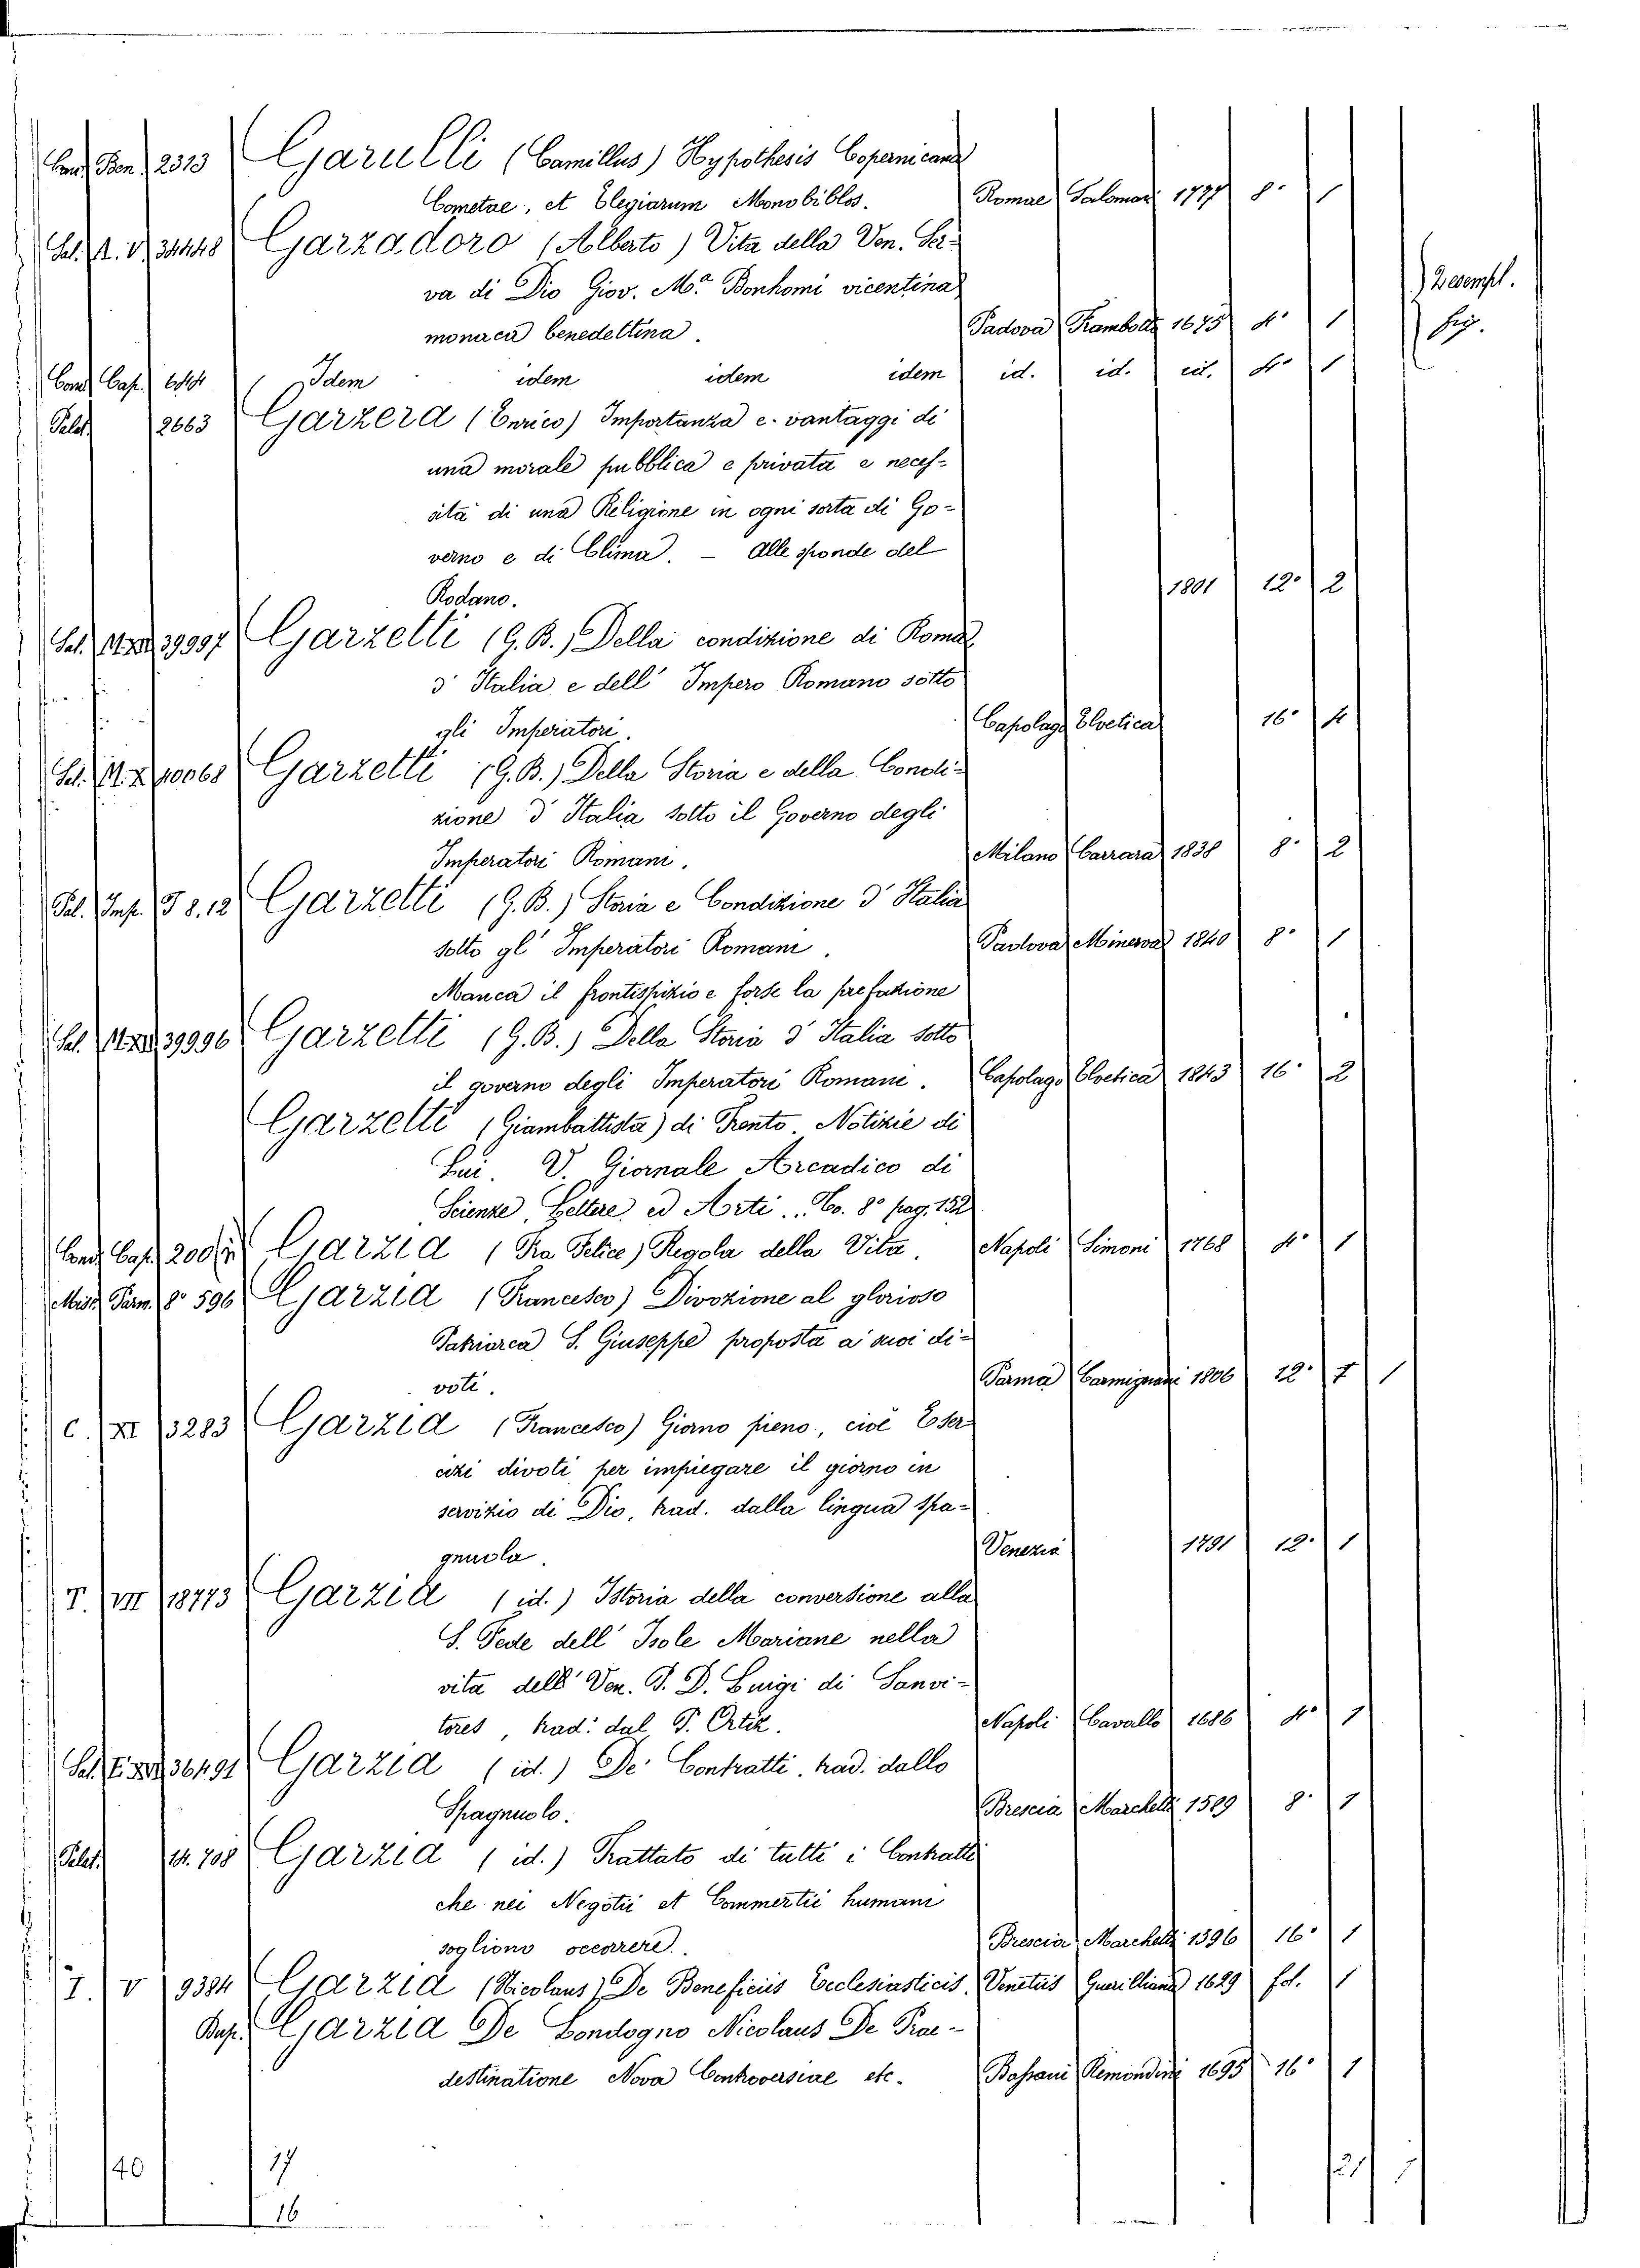 Cons. Ben. 2313 Garulli (Camillus) Hypothesis Copernicana
Cometae, et Elegiarum Monobiblos. Romae Salomoni 1777 8° 1
Sal. A. V. Garzadoro (Alberto) Vita della Ven. Ser-
va di Dio Giov. Mª Bonhomi vicentina
monaca benedettina. Padova Frambotti 1675 4° 1
2 esempl. fig.
Cons. Cap. Idem idem idem idem id. id. id. 4° 1
Palat. 2663 Garzera (Enrico) Importanza e vantaggi di
una morale pubblica e privata e neces-
sità di una Religione in ogni sorta di Go-
verno e di Clima. – Alle sponde del
Rodano. 1801 12° 2
Sal. 39997 Garzetti (G. B.) Della condizione di Roma
d' Italia e dell' Impero Romano sotto
gli Imperatori. Capolago Elvetica 16° 4
Sal. M. X 10068 Garzetti (G. B.) Della Storia e della Condi-
zione d' Italia sotto il Governo degli
Imperatori Romani. Milano Carrara 1838 8° 2
Pal. Imp. 8.12 Garzetti (G. B.) Storia e Condizione d' Italia
sotto gl' Imperatori Romani. Padova Minerva 1840 8° 1
Manca il frontispizio e forse la prefazione
Sal. 39996 Garzetti (G. B.) Della Storia d' Italia sotto
il governo degli Imperatori Romani. Capolago Elvetica 1843 16° 2
Garzetti (Giambattista) di Trento. Notizie di
Lui. V. Giornale Arcadico di
Scienze, Lettere, ed Arti. 8° pag. 152
Cons. Cap. 200 Garzia (Fra Felice) Regola della Vita. Napoli Simoni 1768 4° 1
Misc. Parm. 8° 596 Garzia (Francesco) Divozione al glorioso
Patriarca S. Giuseppe proposta a' suoi di-
voti. Parma Carmignani 1806 12° 7 1
C. XI 3283 Garzia (Francesco) Giorno pieno, cioè Eser
cizi divoti per impiegare il giorno in
servizio di Dio, trad. dalla lingua spa-
gnuola. Venezia 1791 12° 1
T. VII 18773 Garzia (id.) Istoria della conversione alla
S. Fede dell' Isole Mariane nella
vita dell Ven. P. D. Luigi di Sanvi-
tores, trad: dal P. Ortiz. Napoli Cavallo 1686 4° 1
Sal. 36491 Garzia (id.) De' Contratti, trad. dallo
Spagnuolo. Brescia Marchetti 1589 8° 1
Palat. 14.708 Garzia (id.) Trattato di tutti i Contratti
che nei Negotii et Commertii humani
sogliono occorrere. Brescia Marchetti 1596 16° 1
I. V 9384 Garzia (Nicolaus) De Beneficiis Ecclesiasticis. Venetiis Guerilliana 1629 fol. 1
Bap. Garzia De Londogno Nicolaus De Prae-
destinatione Nova Controversiae etc. Bassani Remondini 1695 16° 1
40 17 21
16